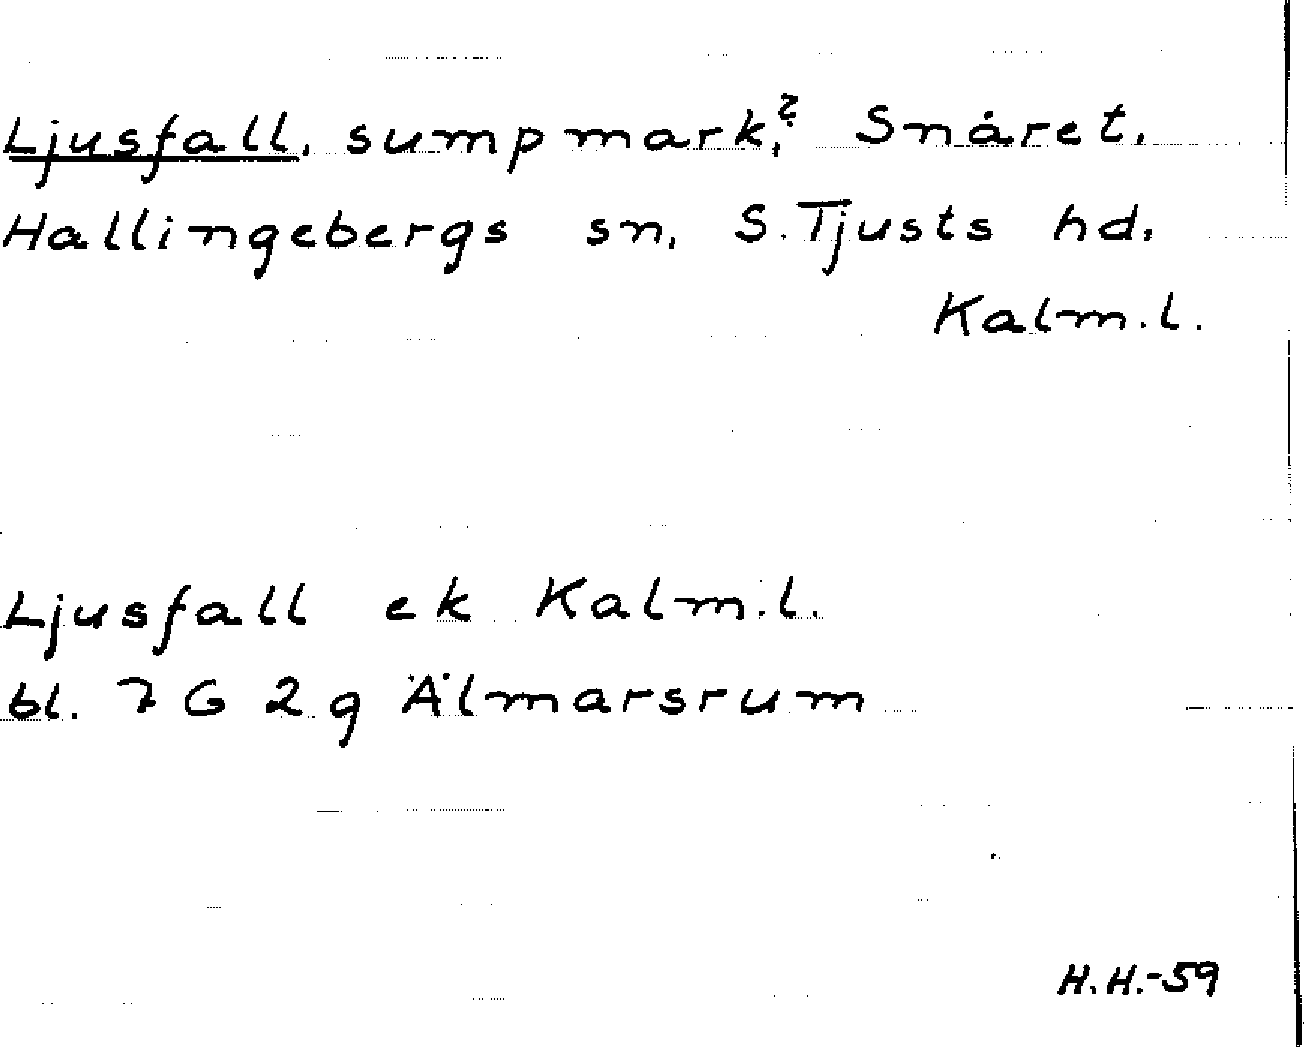 Ljusfall, sumpmark?, Snåret.
Hallingebergs sn, S. Tjusts hd.
Kalm. l.
Ljusfall ek Kalm. l.
bl. 7 G 2 g Älmarsrum
H. H. -59